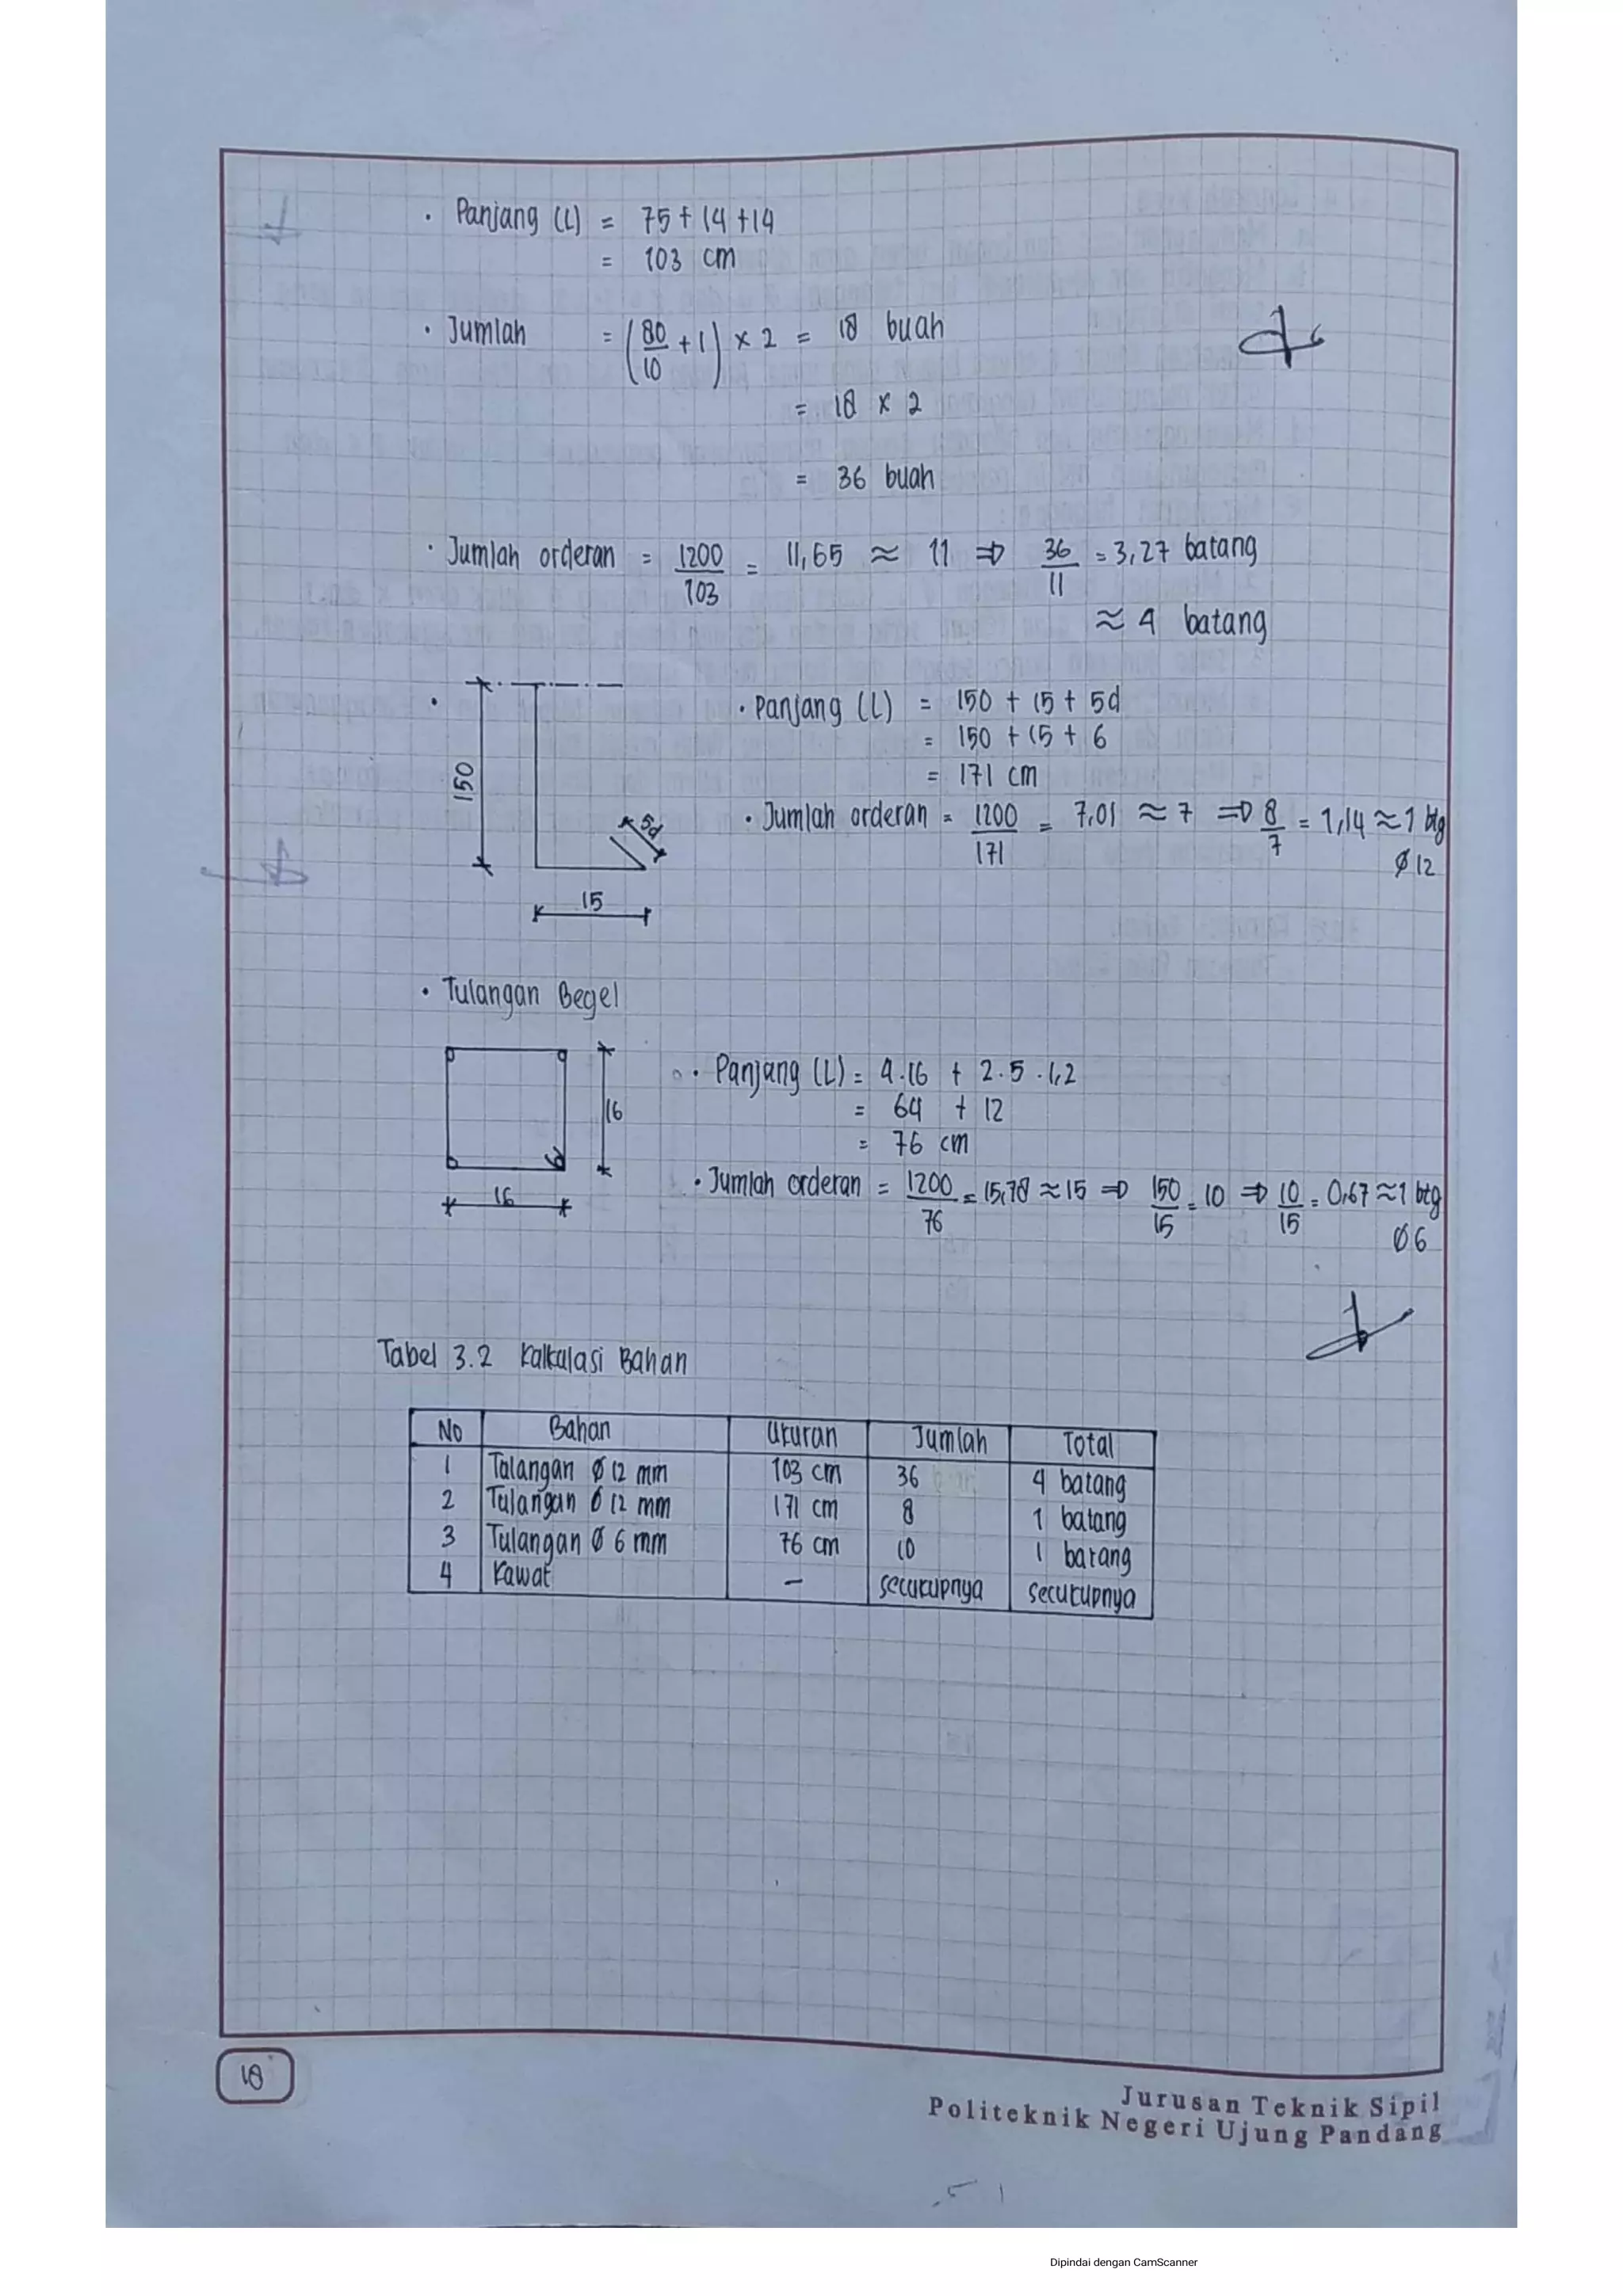 • Panjang (L) = 75 + 14 + 14
= 103 cm
• Jumlah = (80/10 + 1) × 2 = 18 buah
= 18 × 2
= 36 buah
• Jumlah orderan = 1200/103 = 11,65 ≈ 11 ⇒ 36/11 = 3,27 batang
≈ 4 batang
150
5d
15
• Panjang (L) = 150 + 15 + 5d
= 150 + 15 + 6
= 171 cm
• Jumlah orderan = 1200/171 = 7,01 ≈ 7 ⇒ 8/7 = 1,14 ≈ 1 btg
Ø 12
• Tulangan Begel
16
16
• Panjang (L) = 4.16 + 2.5.1,2
= 64 + 12
= 76 cm
• Jumlah orderan = 1200/76 = 15,78 ≈ 15 ⇒ 150/15 = 10 ⇒ 10/15 = 0,67 ≈ 1 btg
Ø6
Tabel 3.2 Kalkulasi Bahan
No Bahan Ukuran Jumlah Total
1 Tulangan Ø 12 mm 103 cm 36 4 batang
2 Tulangan Ø 12 mm 171 cm 8 1 batang
3 Tulangan Ø 6 mm 76 cm 10 1 batang
4 Kawat - secukupnya secukupnya
18
Jurusan Teknik Sipil
Politeknik Negeri Ujung Pandang
Dipindai dengan CamScanner